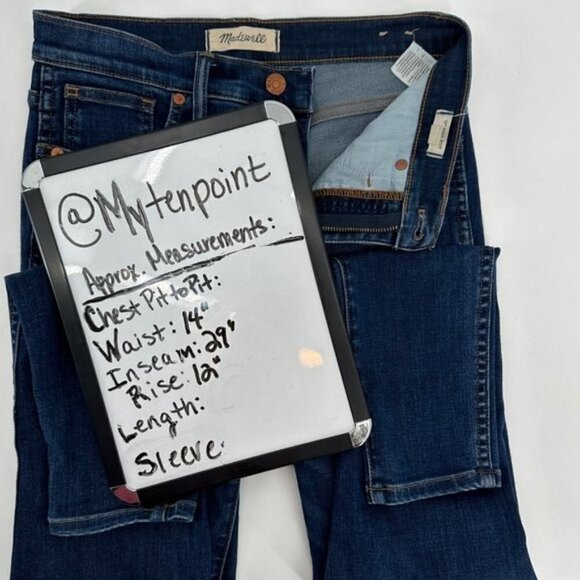 Madewell
@Mytenpoint
Approx. Measurements:
Chest Pit to Pit:
Waist: 14"
Inseam: 29"
Rise: 12"
Length:
Sleeve: